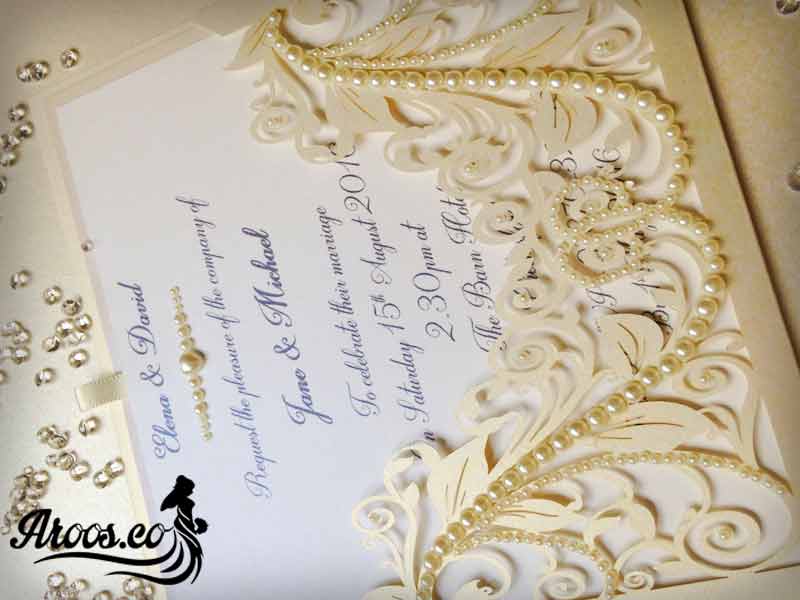 Elena & David
Request the pleasure of the company of
Jane & Michael
To celebrate their marriage
Saturday 15th August 201
2.30pm at
The Barn Hot
Aroos.co